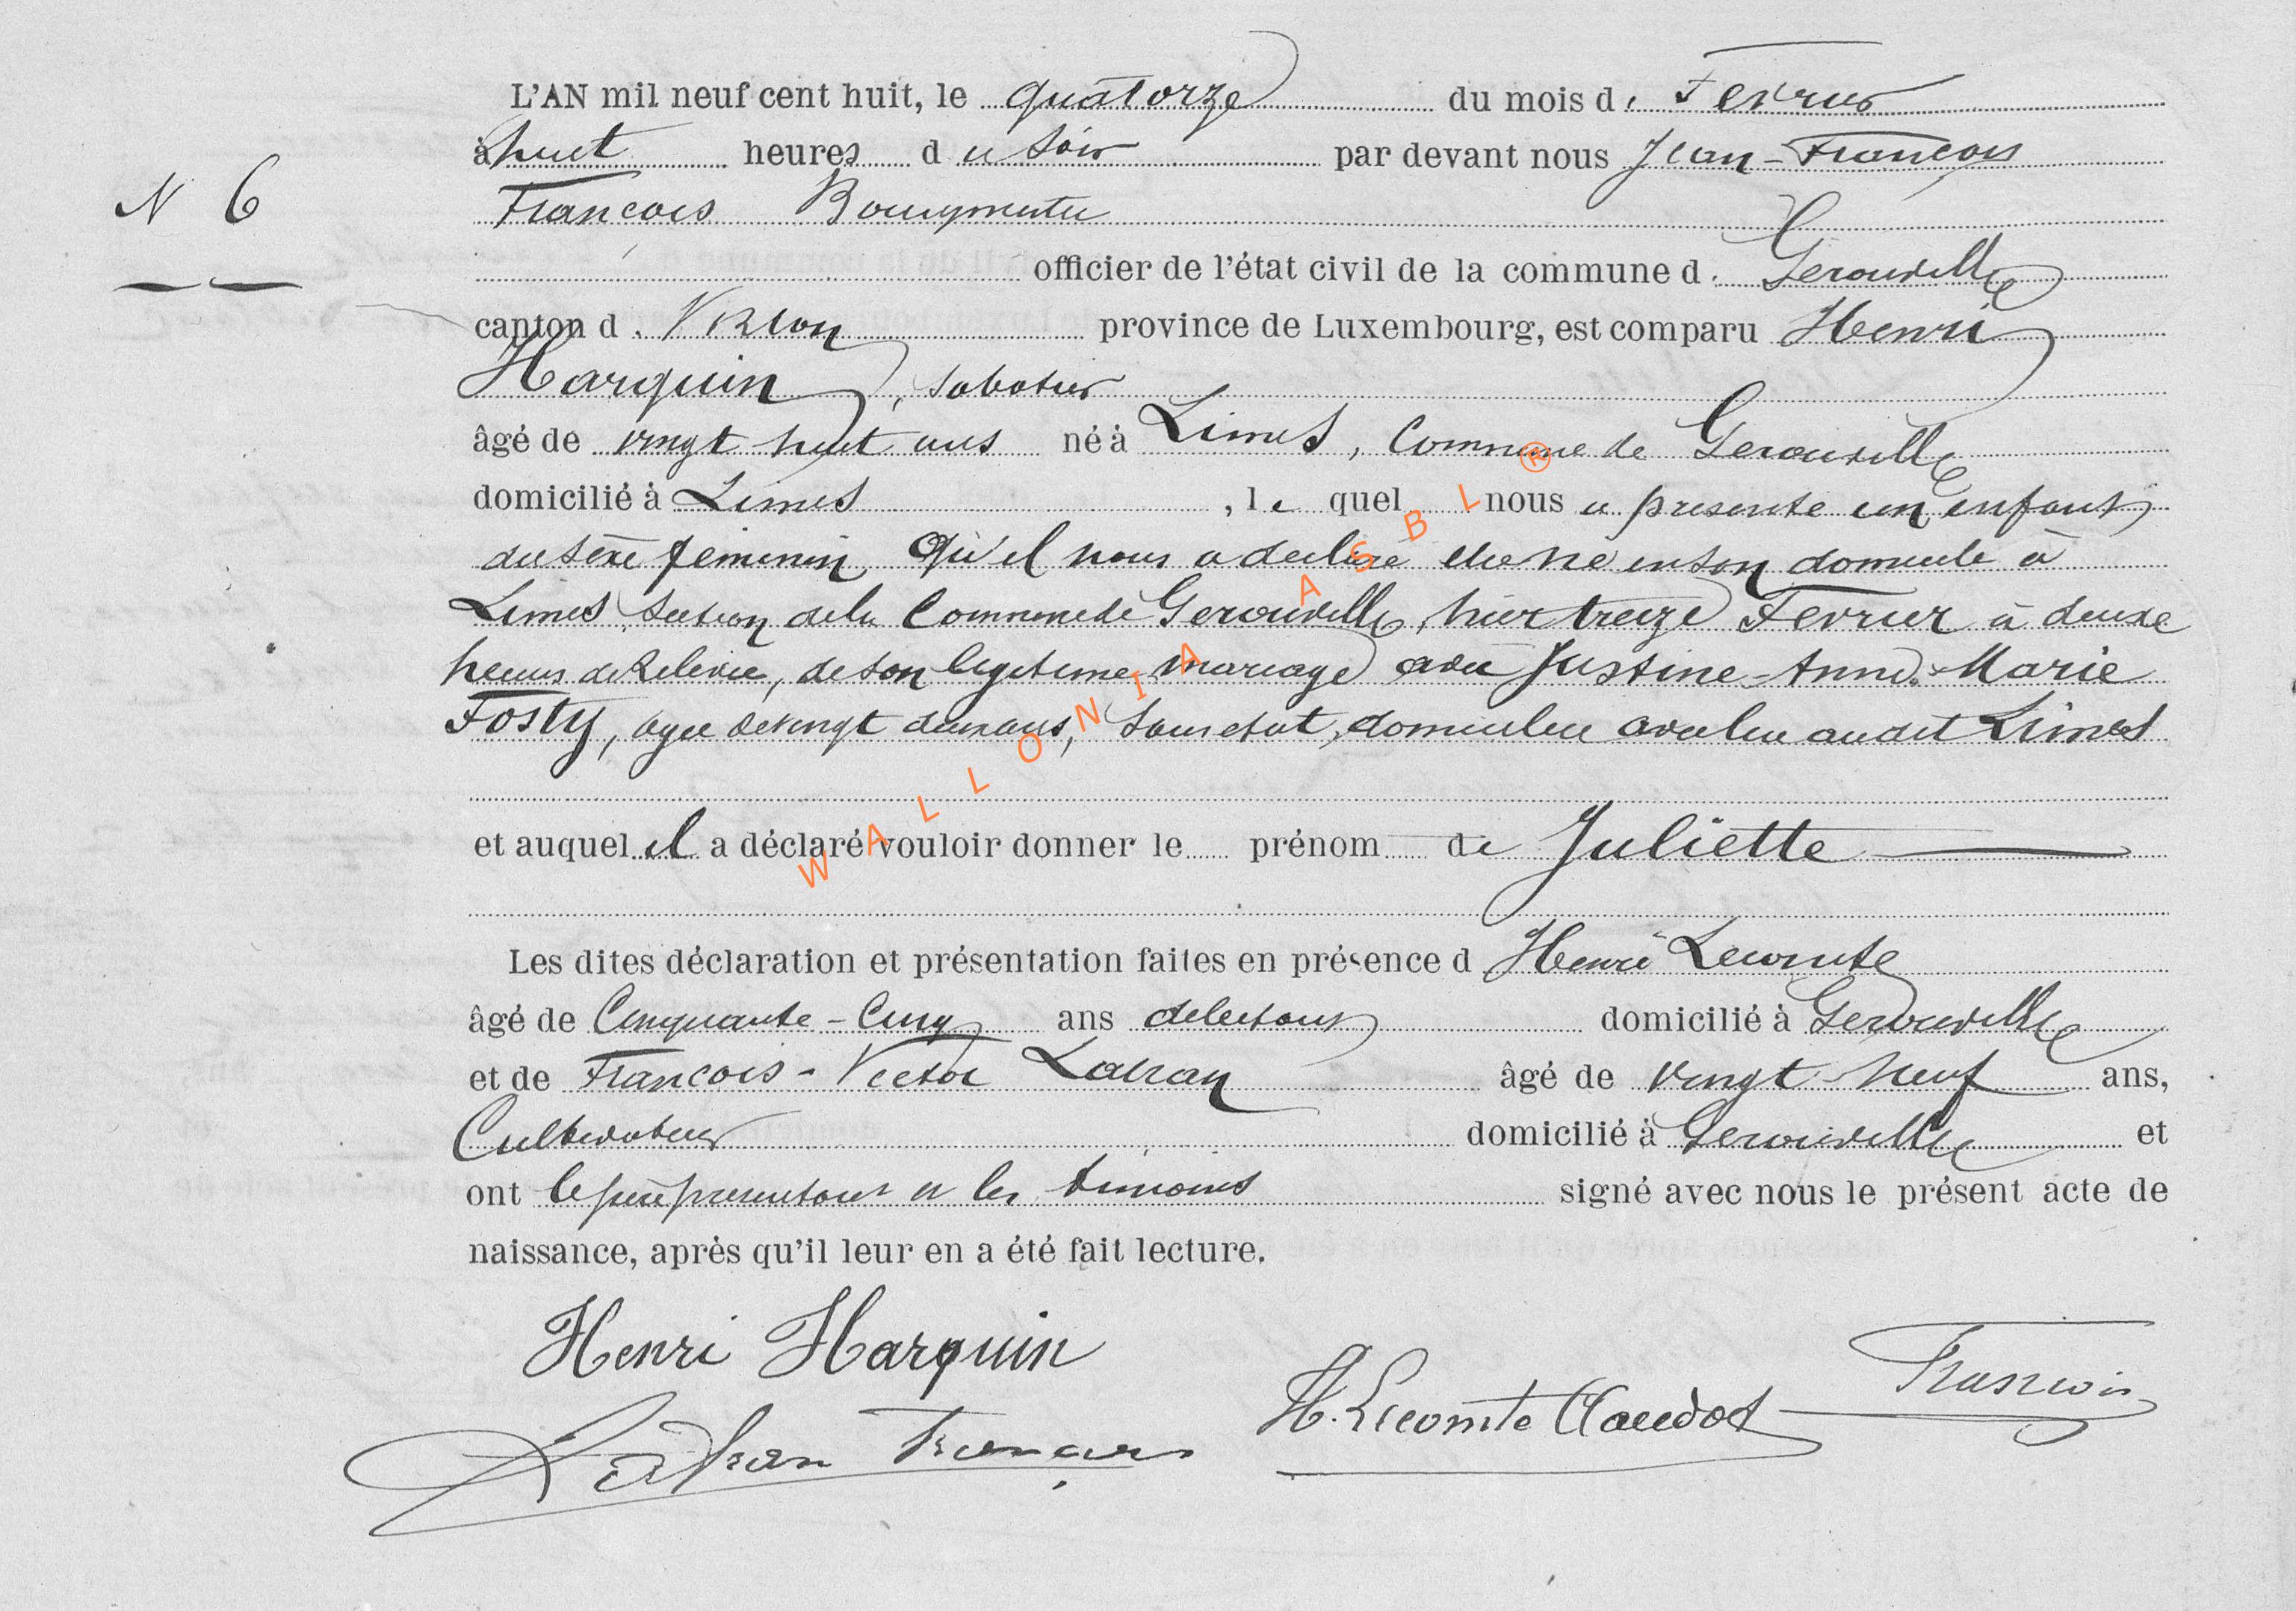 L'AN mil neuf cent huit, le quatorze du mois de Fevrier
à huit heures du soir par devant nous Jean-François
N 6
François Bourgmestre
officier de l'état civil de la commune de Gerouville
canton de Virton province de Luxembourg, est comparu Henri
Harquin, sabotier
âgé de vingt huit ans né à Limes, Commune de Gerouville
domicilié à Limes, le quel nous a presenté un enfant
du sexe feminin qu'il nous a declare etre né en son domicile à
Limes section de la Commune de Gerouville, hier treize Fevrier à deux
heures de Relevée, de son legitime mariage avec Justine-Anne-Marie
Fosty, agee de vingt deux ans, sans etat, domiciliee avec lui audit Limes
et auquel il a déclaré vouloir donner le prénom de Juliette
Les dites déclaration et présentation faites en présence d Henri Lecomte
âgé de Cinquante-Cinq ans debitant domicilié à Gerouville
et de François-Victor Ladran âgé de vingt neuf ans,
Cultivateur domicilié à Gerouville et
ont le père presentant et les temoins signé avec nous le présent acte de
naissance, après qu'il leur en a été fait lecture.
Henri Harquin
H. Lecomte Claudot
François
Ladran François
WALLONIA ASBL ®